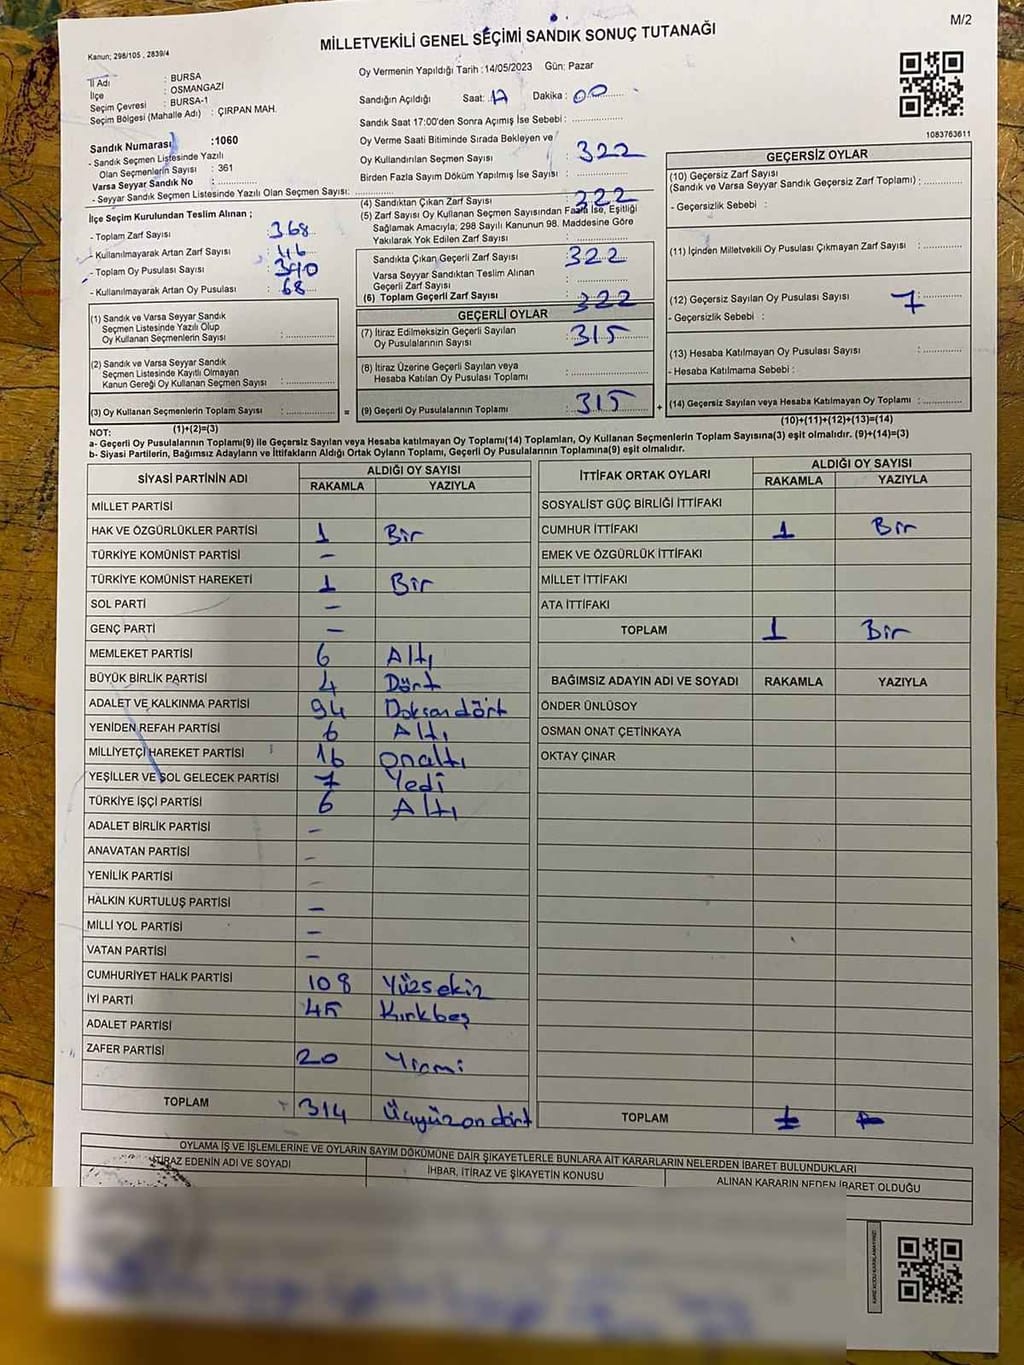 M/2
MİLLETVEKİLİ GENEL SEÇİMİ SANDIK SONUÇ TUTANAĞI
Kanun; 298/105 , 2839/4
İl Adı : BURSA
İlçe : OSMANGAZİ
Seçim Çevresi : BURSA-1
Seçim Bölgesi (Mahalle Adı) : ÇIRPAN MAH.
Sandık Numarası :1060
- Sandık Seçmen Listesinde Yazılı
Olan Seçmenlerin Sayısı : 361
Varsa Seyyar Sandık No :
- Seyyar Sandık Seçmen Listesinde Yazılı Olan Seçmen Sayısı:
Oy Vermenin Yapıldığı Tarih :14/05/2023 Gün: Pazar
Sandığın Açıldığı Saat: 17 Dakika: 00
Sandık Saat 17:00'den Sonra Açımış İse Sebebi :
Oy Verme Saati Bitiminde Sırada Bekleyen ve
Oy Kullandırılan Seçmen Sayısı : 322
Birden Fazla Sayım Döküm Yapılmış İse Sayısı :
1083763611
İlçe Seçim Kurulundan Teslim Alınan ;
- Toplam Zarf Sayısı : 368
- Kullanılmayarak Artan Zarf Sayısı : 46
- Toplam Oy Pusulası Sayısı : 390
- Kullanılmayarak Artan Oy Pusulası : 68
(1) Sandık ve Varsa Seyyar Sandık
Seçmen Listesinde Yazılı Olup
Oy Kullanan Seçmenlerin Sayısı :
(2) Sandık ve Varsa Seyyar Sandık
Seçmen Listesinde Kayıtlı Olmayan
Kanun Gereği Oy Kullanan Seçmen Sayısı :
(3) Oy Kullanan Seçmenlerin Toplam Sayısı : =
(1)+(2)=(3)
(4) Sandıktan Çıkan Zarf Sayısı : 322
(5) Zarf Sayısı Oy Kullanan Seçmen Sayısından Fazla İse, Eşitliği
Sağlamak Amacıyla; 298 Sayılı Kanunun 98. Maddesine Göre
Yakılarak Yok Edilen Zarf Sayısı :
Sandıkta Çıkan Geçerli Zarf Sayısı : 322
Varsa Seyyar Sandıktan Teslim Alınan
Geçerli Zarf Sayısı :
(6) Toplam Geçerli Zarf Sayısı : 322
GEÇERLİ OYLAR
(7) İtiraz Edilmeksizin Geçerli Sayılan
Oy Pusulalarının Sayısı : 315
(8) İtiraz Üzerine Geçerli Sayılan veya
Hesaba Katılan Oy Pusulası Toplamı :
(9) Geçerli Oy Pusulalarının Toplamı : 315 +
GEÇERSİZ OYLAR
(10) Geçersiz Zarf Sayısı
(Sandık ve Varsa Seyyar Sandık Geçersiz Zarf Toplamı) :
- Geçersizlik Sebebi :
(11) İçinden Milletvekili Oy Pusulası Çıkmayan Zarf Sayısı :
(12) Geçersiz Sayılan Oy Pusulası Sayısı : 7
- Geçersizlik Sebebi :
(13) Hesaba Katılmayan Oy Pusulası Sayısı :
- Hesaba Katılmama Sebebi :
(14) Geçersiz Sayılan veya Hesaba Katılmayan Oy Toplamı :
(10)+(11)+(12)+(13)=(14)
NOT:
a- Geçerli Oy Pusulalarının Toplamı(9) ile Geçersiz Sayılan veya Hesaba katılmayan Oy Toplamı(14) Toplamları, Oy Kullanan Seçmenlerin Toplam Sayısına(3) eşit olmalıdır. (9)+(14)=(3)
b- Siyasi Partilerin, Bağımsız Adayların ve İttifakların Aldığı Ortak Oyların Toplamı, Geçerli Oy Pusulalarının Toplamına(9) eşit olmalıdır.
SİYASİ PARTİNİN ADI ALDIĞI OY SAYISI
RAKAMLA YAZIYLA
MİLLET PARTİSİ
HAK VE ÖZGÜRLÜKLER PARTİSİ 1 Bir
TÜRKİYE KOMÜNİST PARTİSİ -
TÜRKİYE KOMÜNİST HAREKETİ 1 Bir
SOL PARTİ -
GENÇ PARTİ -
MEMLEKET PARTİSİ 6 Altı
BÜYÜK BİRLİK PARTİSİ 4 Dört
ADALET VE KALKINMA PARTİSİ 94 Doksandört
YENİDEN REFAH PARTİSİ 6 Altı
MİLLİYETÇİ HAREKET PARTİSİ 16 onaltı
YEŞİLLER VE SOL GELECEK PARTİSİ 7 Yedi
TÜRKİYE İŞÇİ PARTİSİ 6 Altı
ADALET BİRLİK PARTİSİ -
ANAVATAN PARTİSİ -
YENİLİK PARTİSİ -
HALKIN KURTULUŞ PARTİSİ -
MİLLİ YOL PARTİSİ -
VATAN PARTİSİ -
CUMHURİYET HALK PARTİSİ 108 Yüzsekiz
İYİ PARTİ 45 Kırkbeş
ADALET PARTİSİ
ZAFER PARTİSİ 20 Yirmi
TOPLAM 314 Üçyüzondört
İTTİFAK ORTAK OYLARI ALDIĞI OY SAYISI
RAKAMLA YAZIYLA
SOSYALİST GÜÇ BİRLİĞİ İTTİFAKI
CUMHUR İTTİFAKI 1 Bir
EMEK VE ÖZGÜRLÜK İTTİFAKI
MİLLET İTTİFAKI
ATA İTTİFAKI
TOPLAM 1 Bir
BAĞIMSIZ ADAYIN ADI VE SOYADI RAKAMLA YAZIYLA
ÖNDER ÜNLÜSOY
OSMAN ONAT ÇETİNKAYA
OKTAY ÇINAR
TOPLAM
OYLAMA İŞ VE İŞLEMLERİNE VE OYLARIN SAYIM DÖKÜMÜNE DAİR ŞİKAYETLERLE BUNLARA AİT KARARLARIN NELERDEN İBARET BULUNDUKLARI
İTİRAZ EDENİN ADI VE SOYADI
İHBAR, İTİRAZ VE ŞİKAYETİN KONUSU
ALINAN KARARIN NEDEN İBARET OLDUĞU